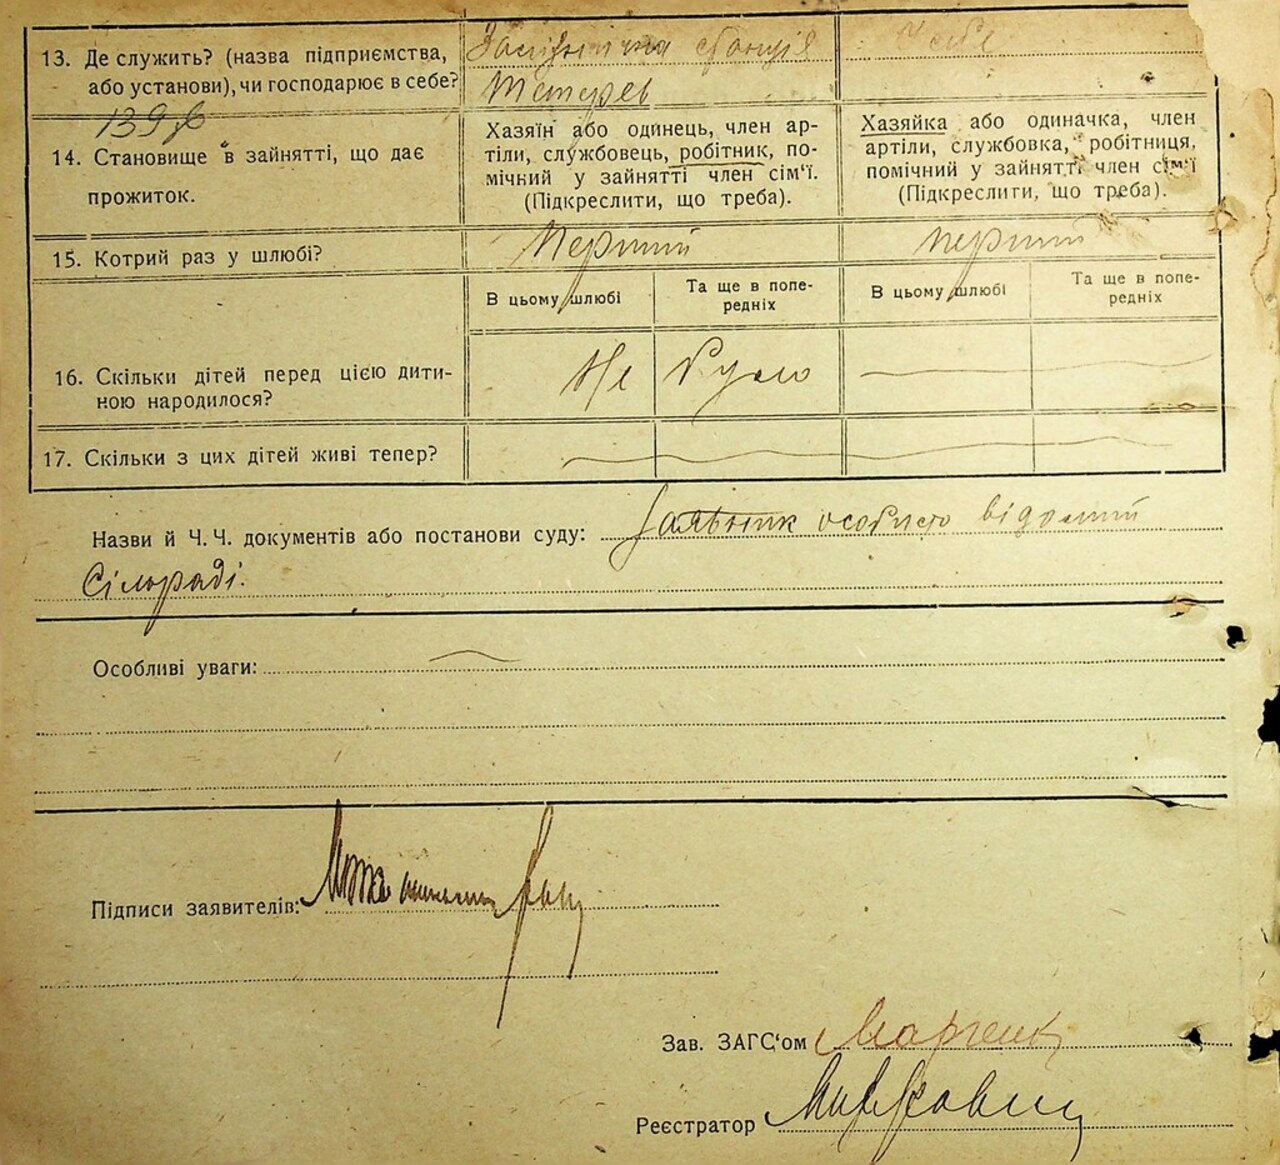 13. Де служить? (назва підприємства, або установи), чи господарює в себе?
Залізнична станція
Тетерев
У себе
14. Становище в зайнятті, що дає прожиток.
Хазяїн або одинець, член ар-
тіли, службовець, робітник, по-
мічний у зайнятті член сім'ї.
(Підкреслити, що треба).
Хазяйка або одиначка, член
артіли, службовка, робітниця,
помічний у зайнятті член сім'ї
(Підкреслити, що треба).
15. Котрий раз у шлюбі?
Перший
перший
В цьому шлюбі
Та ще в попе-
редніх
В цьому шлюбі
Та ще в попе-
редніх
16. Скільки дітей перед цією дити-
ною народилося?
Не було
17. Скільки з цих дітей живі тепер?
Назви й Ч.Ч. документів або постанови суду: Заявник особисто відомий
Сільраді.
Особливі уваги:
Підписи заявителів:
Зав. ЗАГС'ом
Реєстратор